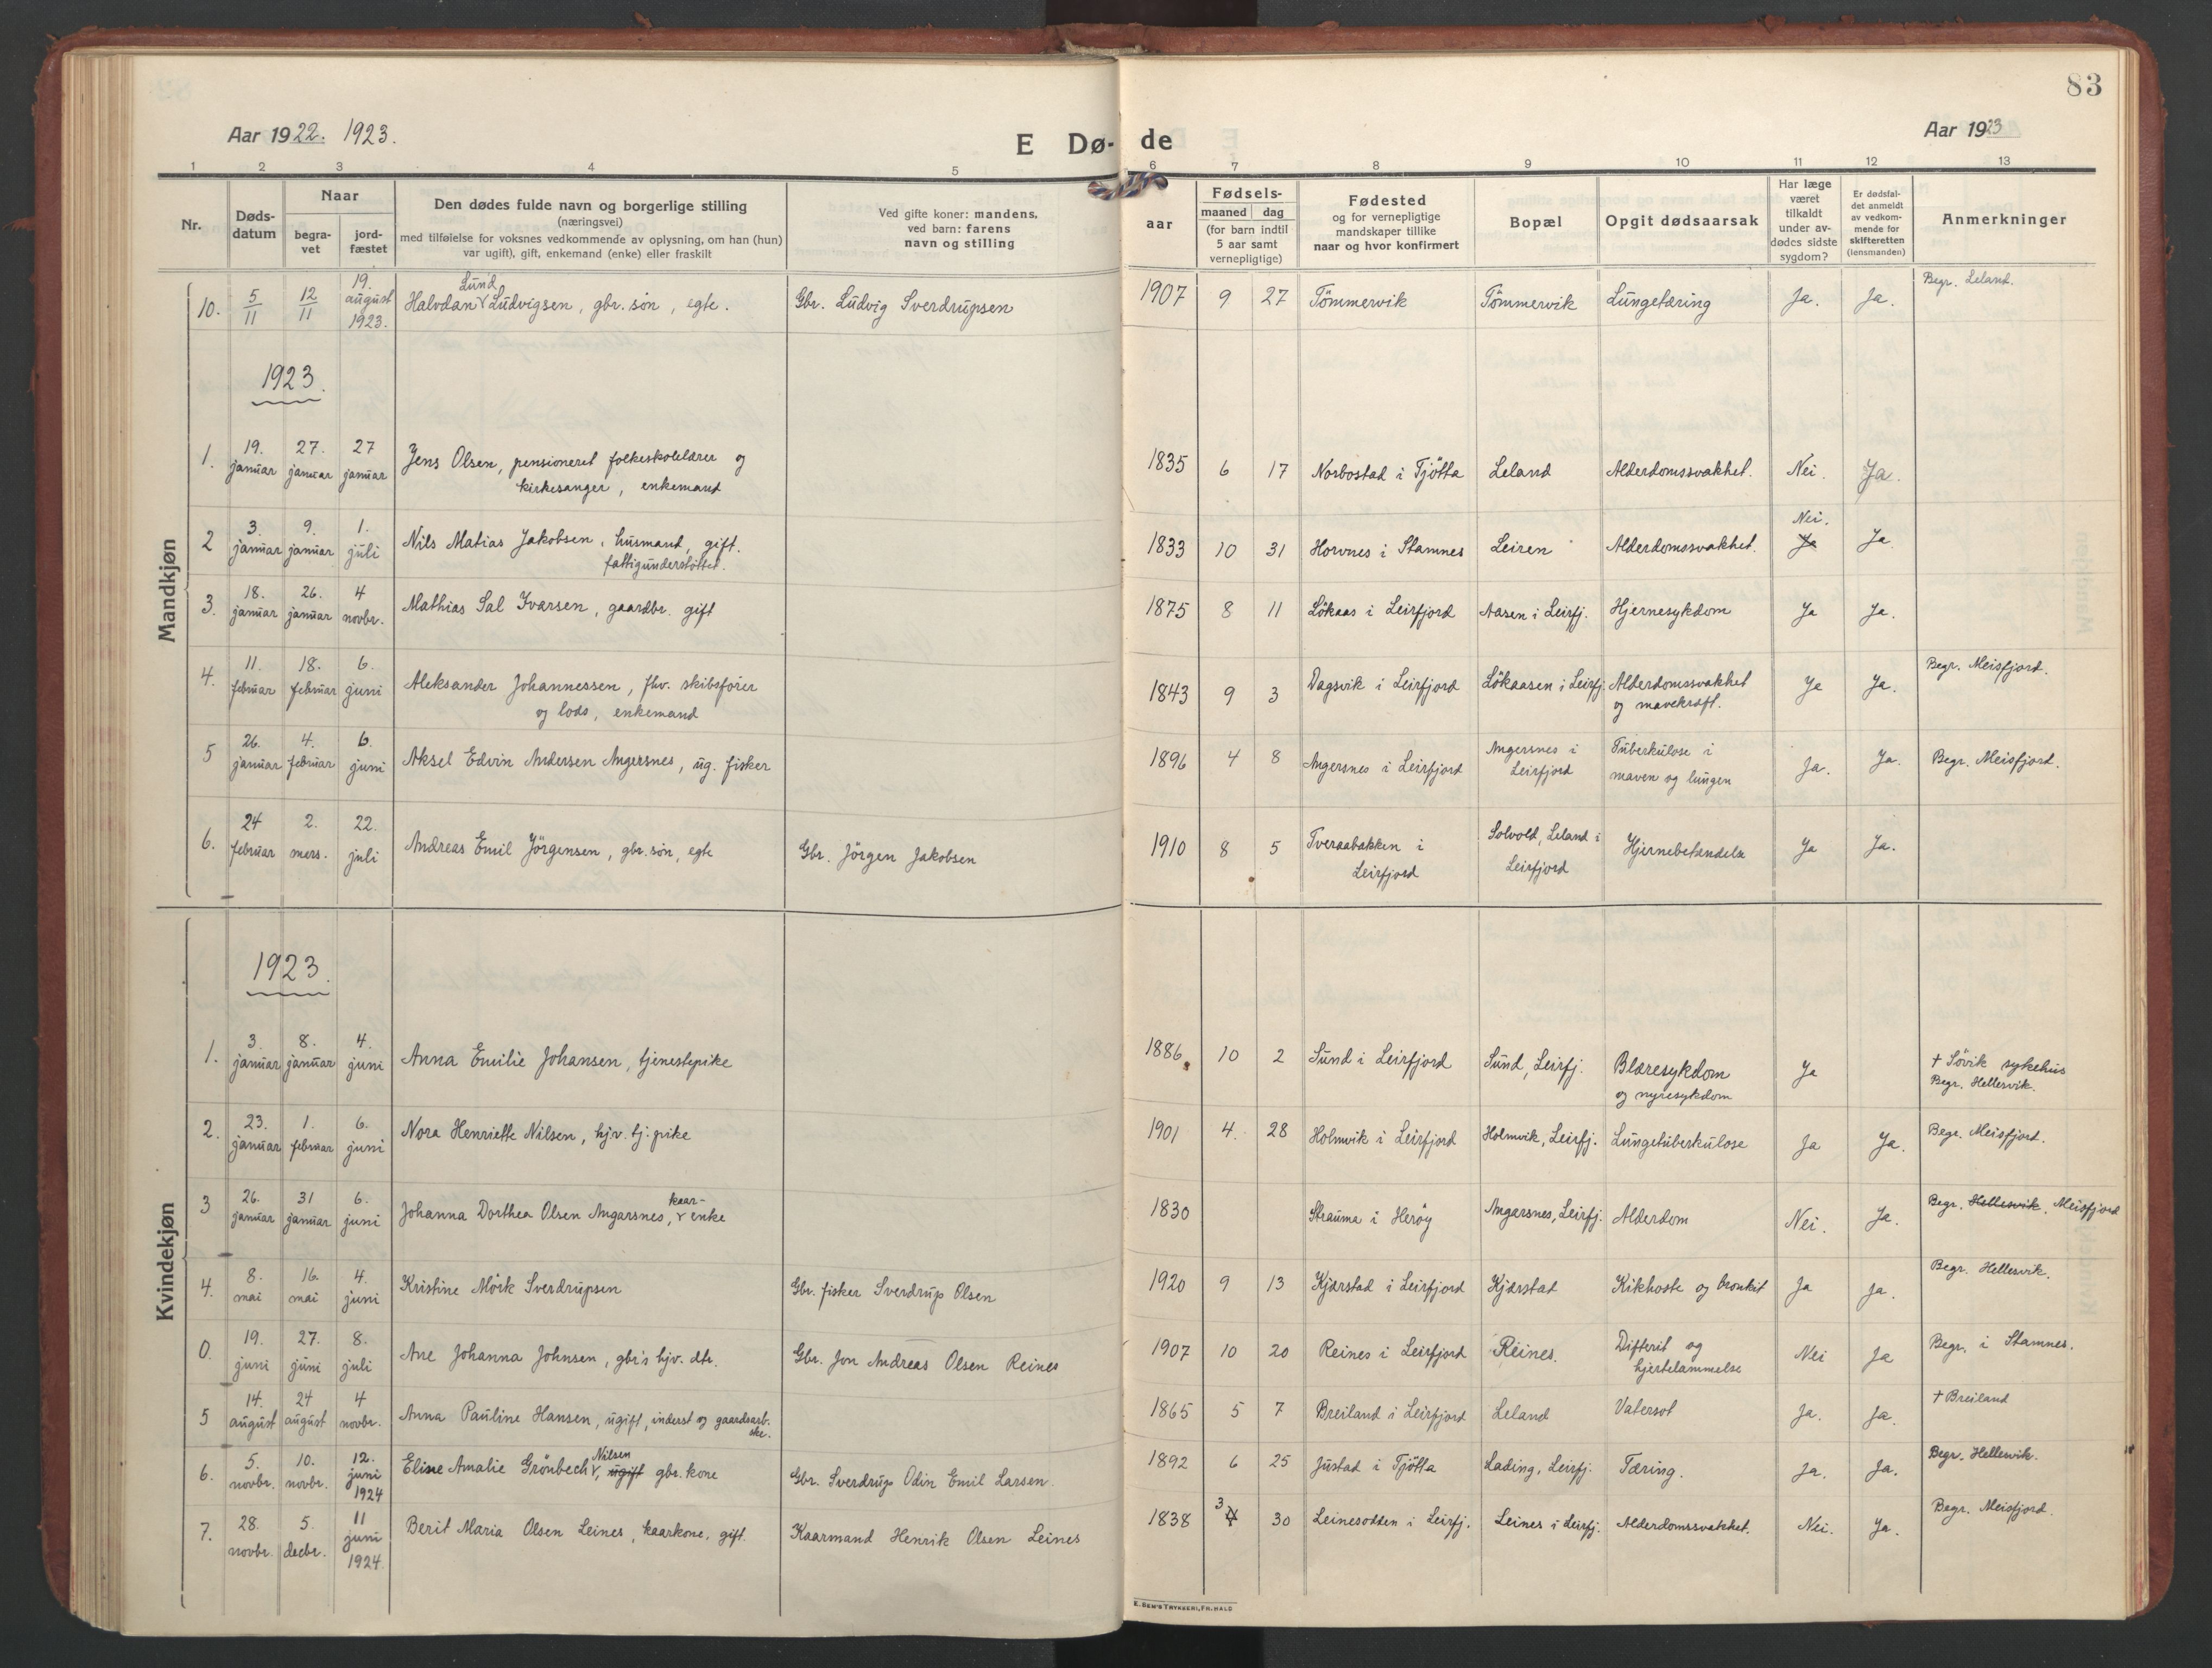 83
Aar 1922. 1923.
E Dø-de
Aar 1923
1 2 3 4 5 6 7 8 9 10 11 12 13
Nr.
Døds-datum
Naar
begra-vet
jord-fæstet
Den dødes fulde navn og borgerlige stilling
(næringsvei)
med tilføielse for voksnes vedkommende av oplysning, om han (hun)
var ugift), gift, enkemand (enke) eller fraskilt
Ved gifte koner: mandens,
ved barn: farens
navn og stilling
aar
Fødsels-
maaned dag
(for barn indtil
5 aar samt
vernepligtige)
Fødested
og for vernepligtige
mandskaper tillike
naar og hvor konfirmert
Bopæl
Opgit dødsaarsak
Har læge
været
tilkaldt
under av-
dødes sidste
sygdom?
Er dødsfal-
det anmeldt
av vedkom-
mende for
skifteretten
(lensmanden)
Anmerkninger
Mandkjøn
10. 5/11 12/11 19. august 1923. Halvdan Lund Ludvigsen, gbr. søn, egte. Gbr. Ludvig Sverdrupsen 1907 9 27 Tömmervik Tömmervik Lungetæring Ja. Ja. Begr. Leland.
1923.
1. 19. januar 27. januar 27 januar Jens Olsen, pensioneret folkeskolelærer og
kirkesanger, enkemand 1835 6 17 Norbostad i Tjötta Leland Alderdomssvakhet. Nei. Ja.
2 3. januar 9. januar 1. juli Nils Matias Jakobsen, husmand, gift.
fattigunderstöttet. 1833 10 31 Horvnes i Stamnes Leiren Alderdomssvakhet. Nei. Ja Ja.
3. 18. januar 26. januar 4 novbr. Mathias Sal Ivarsen, gaardbr. gift 1875 8 11 Lökaas i Leirfjord Aasen i Leirfj. Hjernesykdom Ja Ja.
4. 11. februar 18. februar 6. juni Aleksander Johannessen, fhv. skibsfører
og lods, enkemand 1843 9 3 Dagsvik i Leirfjord Lökaasen i Leirfj. Alderdomssvakhet
og mavekræft. Ja Ja. Begr. Meisfjord.
5 26. januar 4. februar 6. juni Aksel Edvin Andersen Angersnes, ug. fisker 1896 4 8 Angersnes i Leirfjord Angersnes i
Leirfjord Tuberkulose i
maven og lungen Ja. Ja. Begr. Meisfjord.
6. 24 februar 2. mars. 22. juli Andreas Emil Jörgensen, gbr. søn, egte Gbr. Jörgen Jakobsen 1910 8 5 Tveraabakken i
Leirfjord Solvold, Leland i
Leirfjord Hjernebetændelse Ja Ja.
Kvindekjøn
1923.
1. 3. januar 8. januar 4. juni Anna Emilie Johansen, tjenestepike 1886 10 2 Sund i Leirfjord Sund, Leirfj. Blæresykdom
og nyresykdom Ja † Sövik sykehus
Begr. Hellesvik.
2. 23. januar 1. februar 6. juni Nora Henriette Nilsen, hjv. tj. pike 1901 4. 28 Holmvik i Leirfjord Holmvik, Leirfj. Lungetuberkulose Ja Ja. Begr. Meisfjord.
3 26. januar 31 januar 6. juni Johanna Dorthea Olsen Angarsnes, kaar-enke 1830 Strauma i Heröy Angarsnes, Leirfj. Alderdom Nei. Ja. Begr. Hellesvik. Meisfjord
4. 8. mai 16. mai 4. juni Kristine Mörk Sverdrupsen Gbr. fisker Sverdrup Olsen 1920 9 13 Kjærstad i Leirfjord Kjærstad Kikhoste og bronkit Ja Ja. Begr. Hellesvik.
0. 19. juni 27. juni 8. juli Ane Johanna Johnsen, gbr's hjv. dtr. Gbr. Jon Andreas Olsen Reines 1907 10 20 Reines i Leirfjord Reines. Difterit og
hjertelammelse Nei Ja Begr. i Stamnes.
5 14. august 24 august 4 novbr. Anna Pauline Hansen, ugift, inderst og gaardsarb.
ske. 1865 5 7 Breiland i Leirfjord Leland Vatersot Ja. Ja. † Breiland
6. 5. novbr. 10. novbr. 12. juni 1924 Eline Amalie Grönbech Nilsen, ugift gbr. kone Gbr. Sverdrup Odin Emil Larsen 1892 6 25 Justad i Tjötta Lading, Leirfj. Tæring. Ja. Ja. Begr. Hellesvik.
7. 28. novbr. 5. decbr. 11 juni 1924. Berit Maria Olsen Leines, kaarkone, gift. Kaarmand Henrik Olsen Leines 1838 3 4 30 Leinesodden i Leirfj. Leines i Leirfj. Alderdomssvakhet. Nei. Ja. Begr. Meisfjord.
E. SEM'S TRYKKERI, FR.HALD